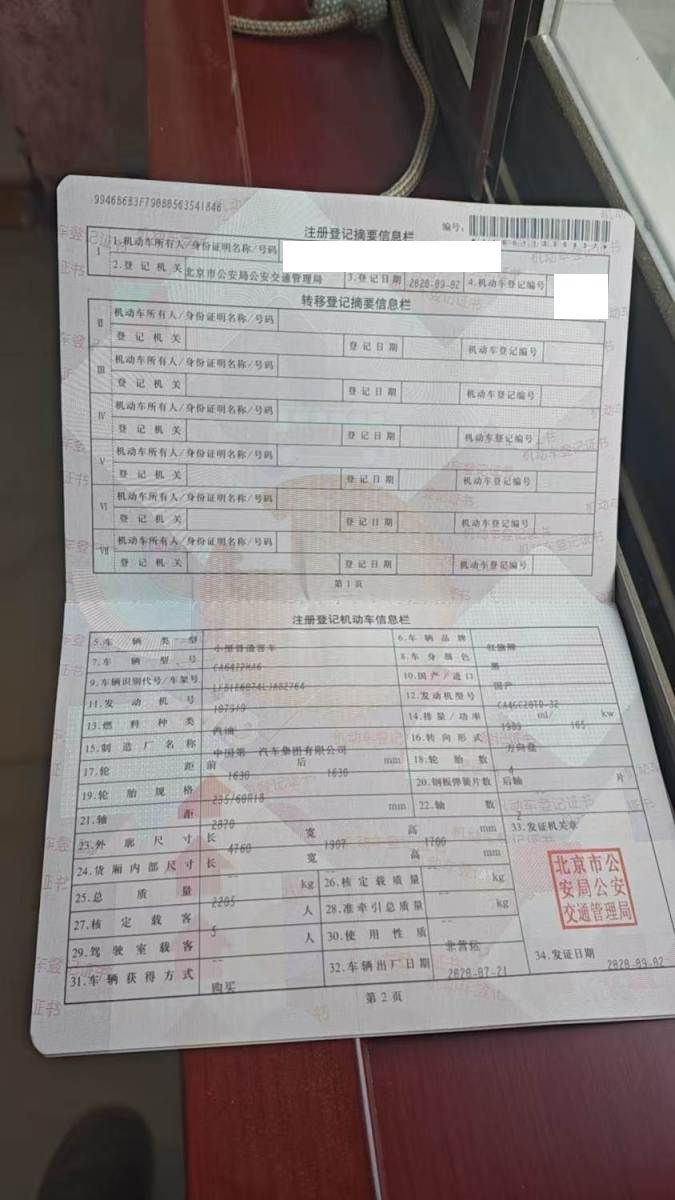 99468683F79088563541846
注册登记摘要信息栏
编号:
I
1.机动车所有人/身份证明名称/号码
2.登记机关 北京市公安局公安交通管理局 3.登记日期 2020-09-02 4.机动车登记编号
转移登记摘要信息栏
II 机动车所有人/身份证明名称/号码
登记机关 登记日期 机动车登记编号
III 机动车所有人/身份证明名称/号码
登记机关 登记日期 机动车登记编号
IV 机动车所有人/身份证明名称/号码
登记机关 登记日期 机动车登记编号
V 机动车所有人/身份证明名称/号码
登记机关 登记日期 机动车登记编号
VI 机动车所有人/身份证明名称/号码
登记机关 登记日期 机动车登记编号
VII 机动车所有人/身份证明名称/号码
登记机关 登记日期 机动车登记编号
第1页
注册登记机动车信息栏
5.车辆类型 小型普通客车 6.车辆品牌 红旗牌
7.车辆型号 CA6472HA6 8.车身颜色 黑
9.车辆识别代号/车架号 10.国产/进口 国产
11.发动机号 12.发动机型号 CA4GC20TD-32
13.燃料种类 汽油 14.排量/功率 1989 ml/ 165 kw
15.制造厂名称 中国第一汽车集团有限公司 16.转向形式 方向盘
17.轮距 前 1630 后 1630 mm 18.轮胎数 4
19.轮胎规格 235/60R18 20.钢板弹簧片数 后轴 片
21.轴距 2870 mm 22.轴数 2
23.外廓尺寸 长 4760 宽 1907 高 1700 mm 33.发证机关章
24.货厢内部尺寸 长 宽 高 mm
25.总质量 2205 kg 26.核定载质量 -- kg
27.核定载客 5 人 28.准牵引总质量 -- kg
29.驾驶室载客 -- 人 30.使用性质 非营运
31.车辆获得方式 购买 32.车辆出厂日期 2020-07-21 34.发证日期 2020-09-02
北京市公
安局公安
交通管理局
第2页